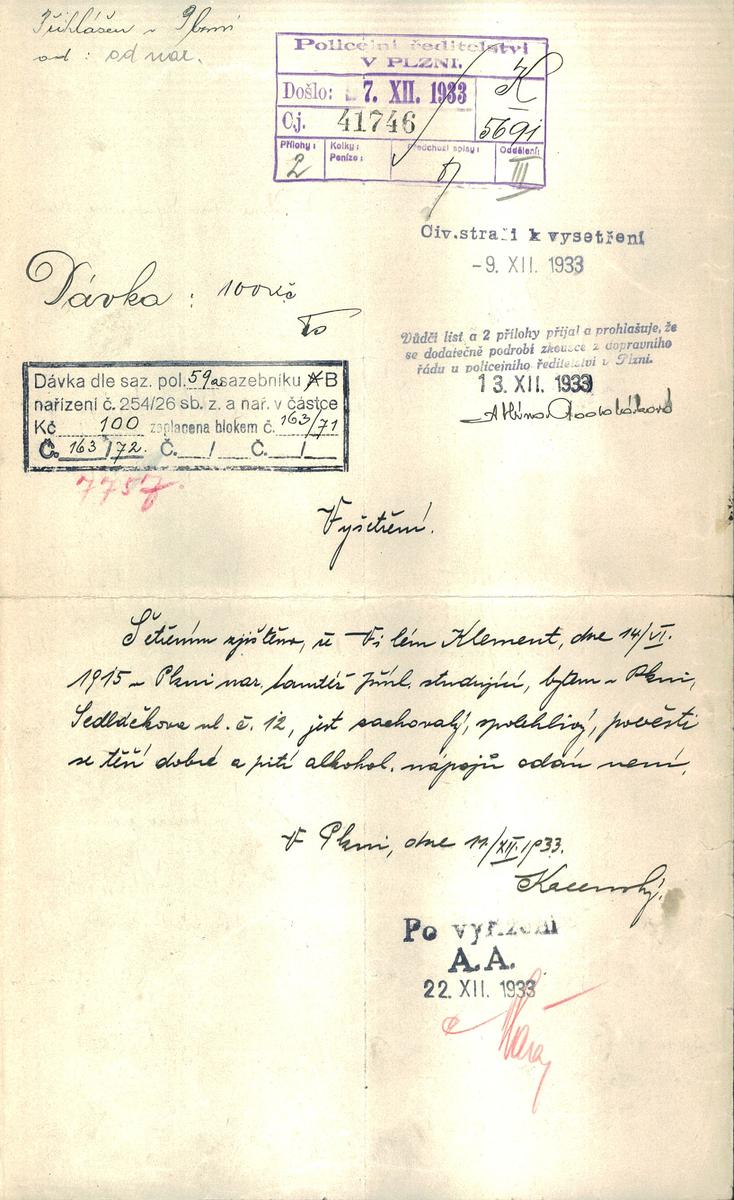 Přihlášen v Plzni
od : od nar.
Policejní ředitelství
V PLZNI.
Došlo: 7. XII. 1933
K
Č.j. 41746
5691
Přílohy: 2
Kolky:
Peníze:
Předchozí spisy:
Oddělení: III
Civ. stráži k vyšetření
-9. XII. 1933
Dávka : 100 Kč
Vůdčí list a 2 přílohy přijal a prohlašuje, že
se dodatečně podrobí zkoušce z dopravního
řádu u policejního ředitelství v Plzni.
13. XII. 1933
Dávka dle saz. pol. 59a sazebníku A B
nařízení č. 254/26 sb. z. a nař. v částce
Kč 100 zaplacena blokem č. 163/71
Č. 163/72. Č. / Č. /
Vyšetření.
Šetřením zjištěno, že Vilém Klement, dne 14/VI.
1915 v Plzni nar. tamtéž přísl. studující, bytem v Plzni,
Sedláčkova ul. č. 12, jest zachovalý, spolehlivý, pověsti
se těší dobré a pití alkohol. nápojů oddán není.
V Plzni, dne 11/XII. 1933.
Po vyřízení
A.A.
22. XII. 1933